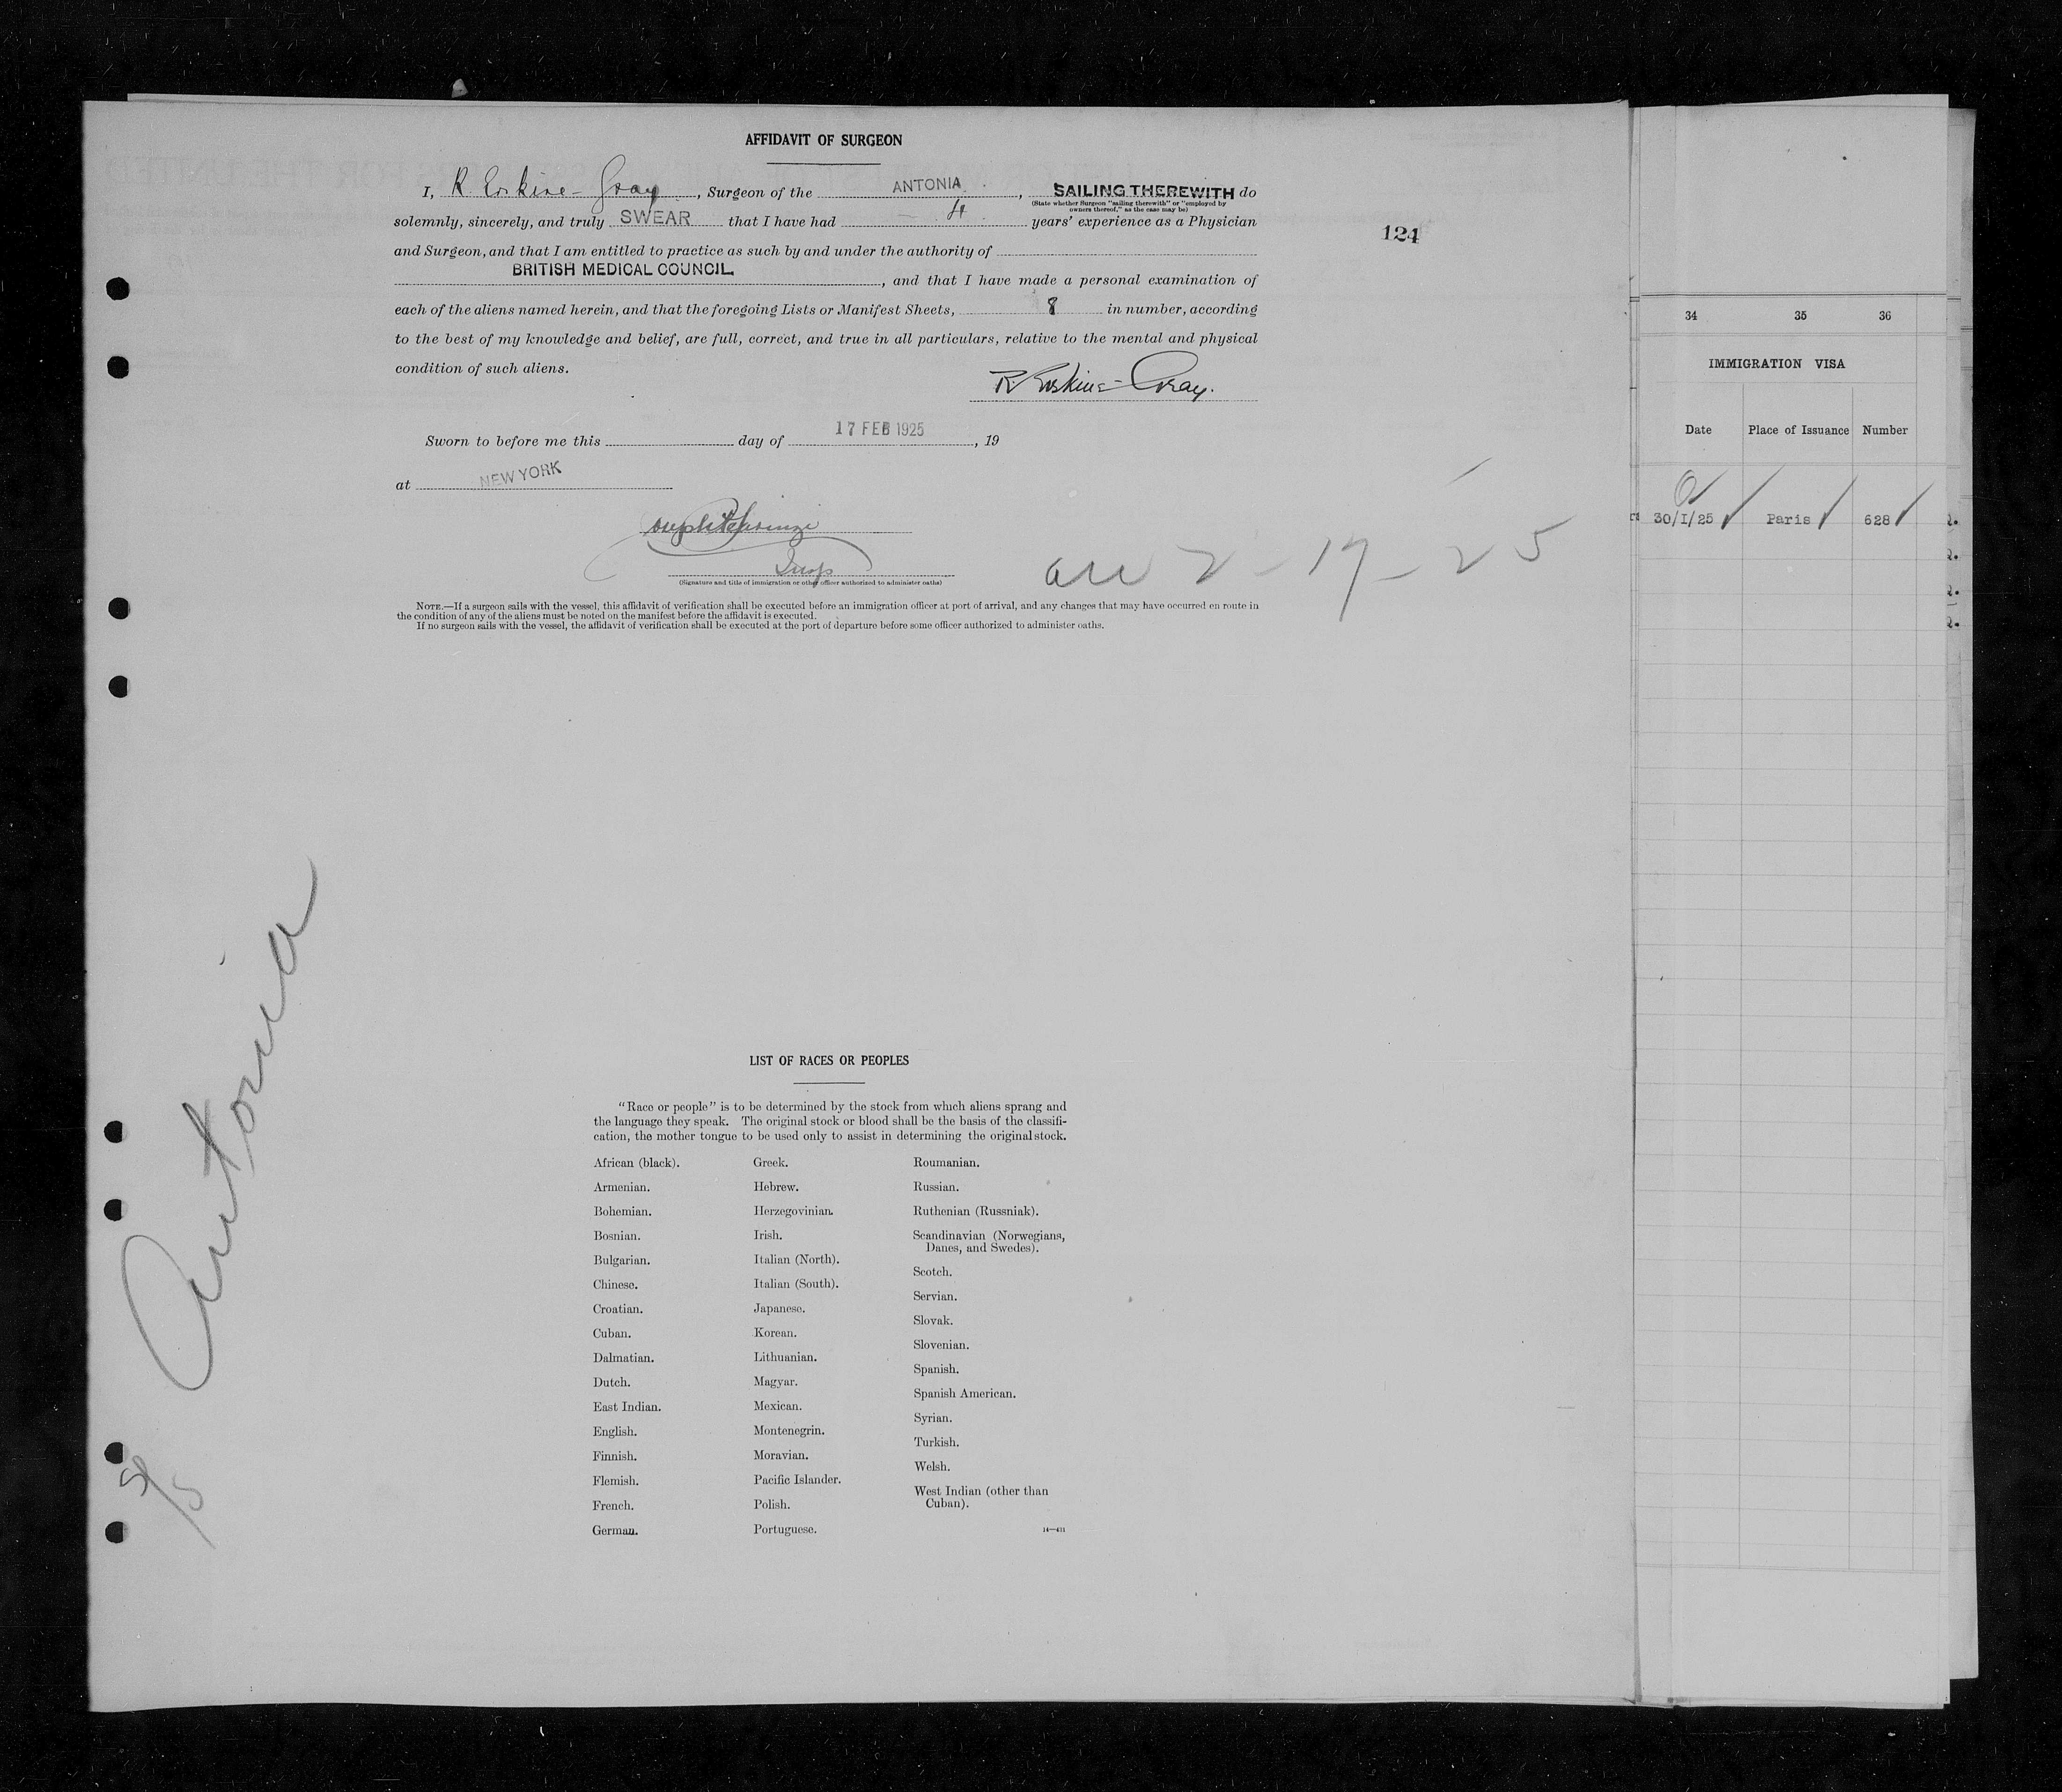 AFFIDAVIT OF SURGEON
I, R Erskine-Gray, Surgeon of the ANTONIA, SAILING THEREWITH do
(State whether Surgeon "sailing therewith" or "employed by
owners thereof," as the case may be)
solemnly, sincerely, and truly SWEAR that I have had 4 years' experience as a Physician
124
and Surgeon, and that I am entitled to practice as such by and under the authority of
BRITISH MEDICAL COUNCIL, and that I have made a personal examination of
each of the aliens named herein, and that the foregoing Lists or Manifest Sheets, 8 in number, according
to the best of my knowledge and belief, are full, correct, and true in all particulars, relative to the mental and physical
condition of such aliens.
R Erskine-Gray.
Sworn to before me this day of 17 FEB 1925, 19
at NEW YORK
Insp
(Signature and title of immigration or other officer authorized to administer oaths)
arr 2-17-25
NOTE.—If a surgeon sails with the vessel, this affidavit of verification shall be executed before an immigration officer at port of arrival, and any changes that may have occurred en route in
the condition of any of the aliens must be noted on the manifest before the affidavit is executed.
If no surgeon sails with the vessel, the affidavit of verification shall be executed at the port of departure before some officer authorized to administer oaths.
S/S Antonia
LIST OF RACES OR PEOPLES
"Race or people" is to be determined by the stock from which aliens sprang and
the language they speak. The original stock or blood shall be the basis of the classifi-
cation, the mother tongue to be used only to assist in determining the original stock.
African (black).
Armenian.
Bohemian.
Bosnian.
Bulgarian.
Chinese.
Croatian.
Cuban.
Dalmatian.
Dutch.
East Indian.
English.
Finnish.
Flemish.
French.
German.
Greek.
Hebrew.
Herzegovinian.
Irish.
Italian (North).
Italian (South).
Japanese.
Korean.
Lithuanian.
Magyar.
Mexican.
Montenegrin.
Moravian.
Pacific Islander.
Polish.
Portuguese.
Roumanian.
Russian.
Ruthenian (Russniak).
Scandinavian (Norwegians,
Danes, and Swedes).
Scotch.
Servian.
Slovak.
Slovenian.
Spanish.
Spanish American.
Syrian.
Turkish.
Welsh.
West Indian (other than
Cuban).
14—431
34 35 36
IMMIGRATION VISA
Date Place of Issuance Number
30/1/25 Paris 628